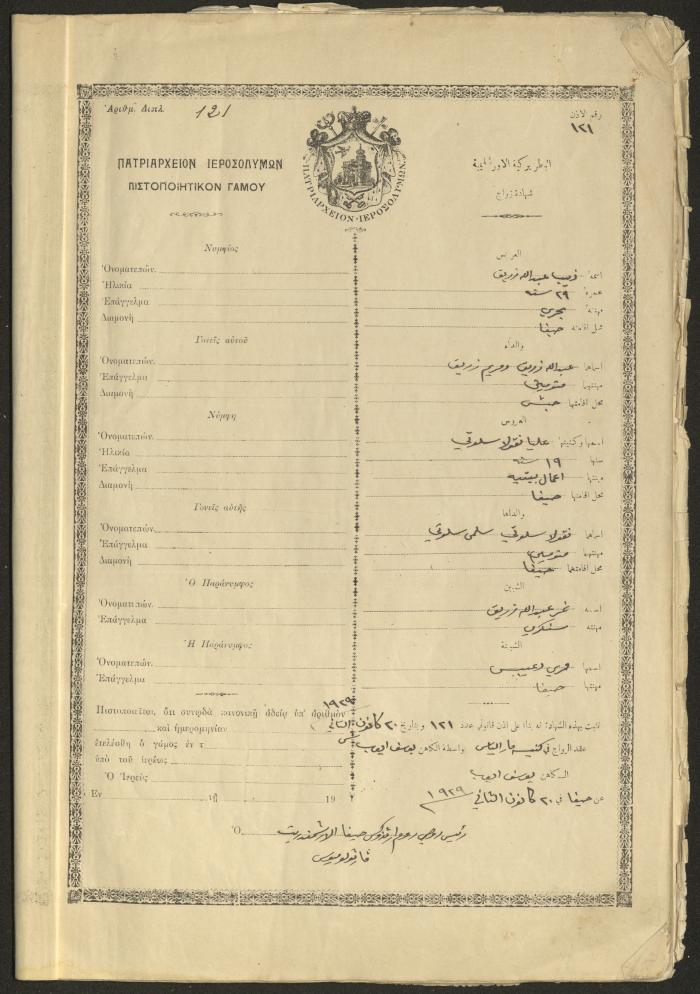 Ἀριθμ. Διπλ. 121
رقم الاذن
١٢١
ΠΑΤΡΙΑΡΧΕΙΟΝ ΙΕΡΟΣΟΛΥΜΩΝ
ΠΙΣΤΟΠΟΙΗΤΙΚΟΝ ΓΑΜΟΥ
ΠΑΤΡΙΑΡΧΕΙΟΝ·ΙΕΡΟΣΟΛΥΜΩΝ
البطريركية الاورشليمية
شهادة زواج
Νυμφίος
Ὀνοματεπών.
Ἡλικία
Ἐπάγγελμα
Διαμονὴ
Γονεῖς αὐτοῦ
Ὀνοματεπών.
Ἐπάγγελμα
Διαμονὴ
Νύμφη
Ὀνοματεπών.
Ἡλικία
Ἐπάγγελμα
Διαμονὴ
Γονεῖς αὐτῆς
Ὀνοματεπών.
Ἐπάγγελμα
Διαμονὴ
Ὁ Παράνυμφος
Ὀνοματεπών.
Ἐπάγγελμα
Ἡ Παράνυμφος
Ὀνοματεπών.
Ἐπάγγελμα
Πιστοποιεῖται, ὅτι συνῳδὰ κανονικῇ ἀδείᾳ ὑπ' ἀριθμὸν
καὶ ἡμερομηνίαν
ἐτελέσθη ὁ γάμος ἐν τ
ὑπὸ τοῦ ἱερέως
Ὁ Ἱερεὺς
Ἐν τῇ 19
العريس
اسمه ذيب عبدالله زريق
عمره ٢٩ سنة
مهنته بحري
محل اقامته حيفا
والداه
اسماها عبدالله زريق ومريم زريق
مهنتهما متوفين
محل اقامتهما
العروس
اسمها وكنيتها عليا نقولا سلوتي
سنها ١٩ سنة
مهنتها اعمال بيتيه
محل اقامتها حيفا
والداها
اسماها نقولا سلوتي سلمى سلوتي
مهنتهما متوفين
محل اقامتهما حيفا
الشبين
اسمه عبدالله زريق
مهنته سنكري
الشبينة
اسمها
مهنتها حيفا
ثابت بهذه الشهادة انه بناء على اذن قانوني عدد ١٢١ وبتاريخ ٢٠ كانون الثاني ١٩٢٩
عقد الزواج في كنيسة مار الياس بواسطة الكاهن يوسف ايوب
الكاهن يوسف ايوب
عن حيفا في ٢٠ كانون الثاني ١٩٢٩
Ὁ رئيس روحي روم ارثوذكس حيفا الارشمندريت